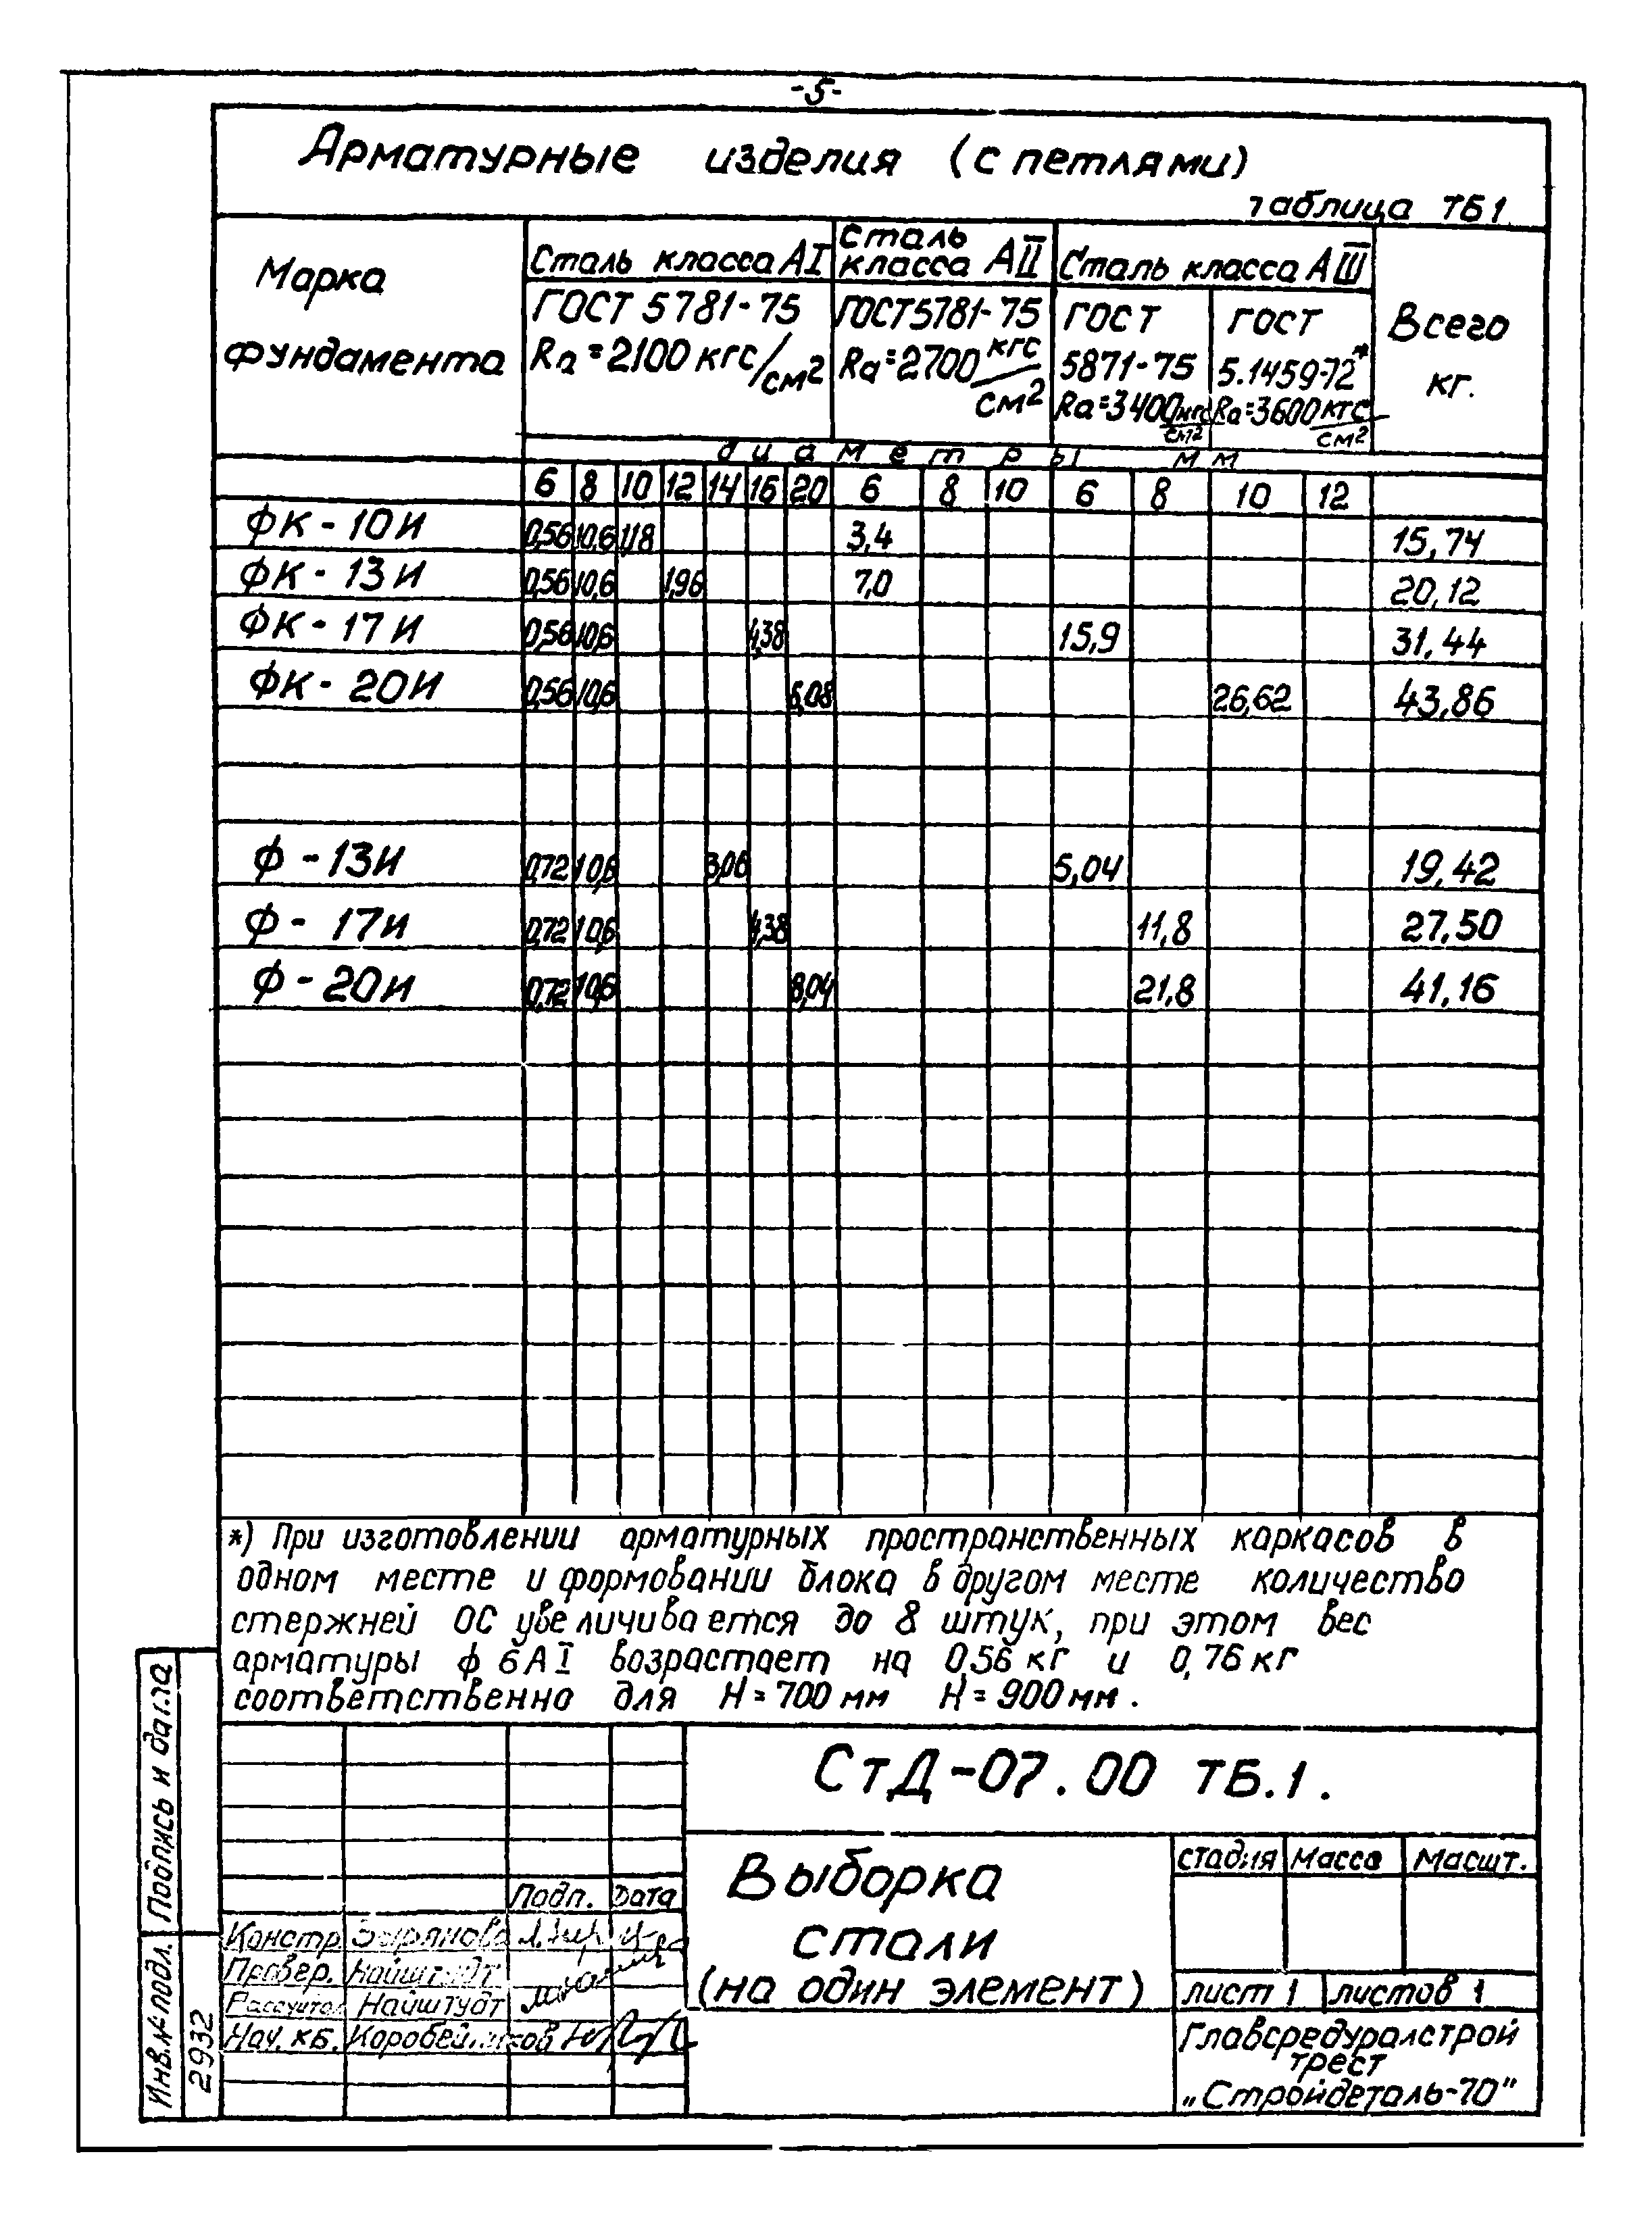 -5-
Арматурные изделия (с петлями)
таблица ТБ1
Марка фундамента
Сталь класса АI
Сталь класса АII
Сталь класса АIII
Всего кг.
ГОСТ 5781-75
Rа=2100 кгс/см²
ГОСТ5781-75
Rа=2700 кгс/см²
ГОСТ 5871-75
Rа=3400 кгс/см²
ГОСТ 5.1459-72*
Rа=3600 кгс/см²
диаметры мм
6 8 10 12 14 16 20 6 8 10 6 8 10 12
ФК-10И 0,56 10,6 1,18 3,4 15,74
ФК-13И 0,56 10,6 1,96 7,0 20,12
ФК-17И 0,56 10,6 4,38 15,9 31,44
ФК-20И 0,56 10,6 6,08 26,62 43,86
Ф-13И 0,72 10,6 3,06 5,04 19,42
Ф-17И 0,72 10,6 4,38 11,8 27,50
Ф-20И 0,72 10,6 8,04 21,8 41,16
*) При изготовлении арматурных пространственных каркасов в
одном месте и формовании блока в другом месте количество
стержней ОС увеличивается до 8 штук, при этом вес
арматуры ф 6АI возрастает на 0,56 кг и 0,76 кг
соответственно для Н=700 мм Н=900 мм.
СтД-07.00 ТБ.1.
Выборка
стали
(на один элемент)
стадия Масса Масшт.
лист 1 листов 1
Главсредуралстрой
трест
„Стройдеталь-70"
Подп. Дата
Констр. Зырянова
Провер. Найштудт
Рассчитал Найштудт
Нач. КБ. Коробейников
Подпись и дата
Инв.№ подл.
2932